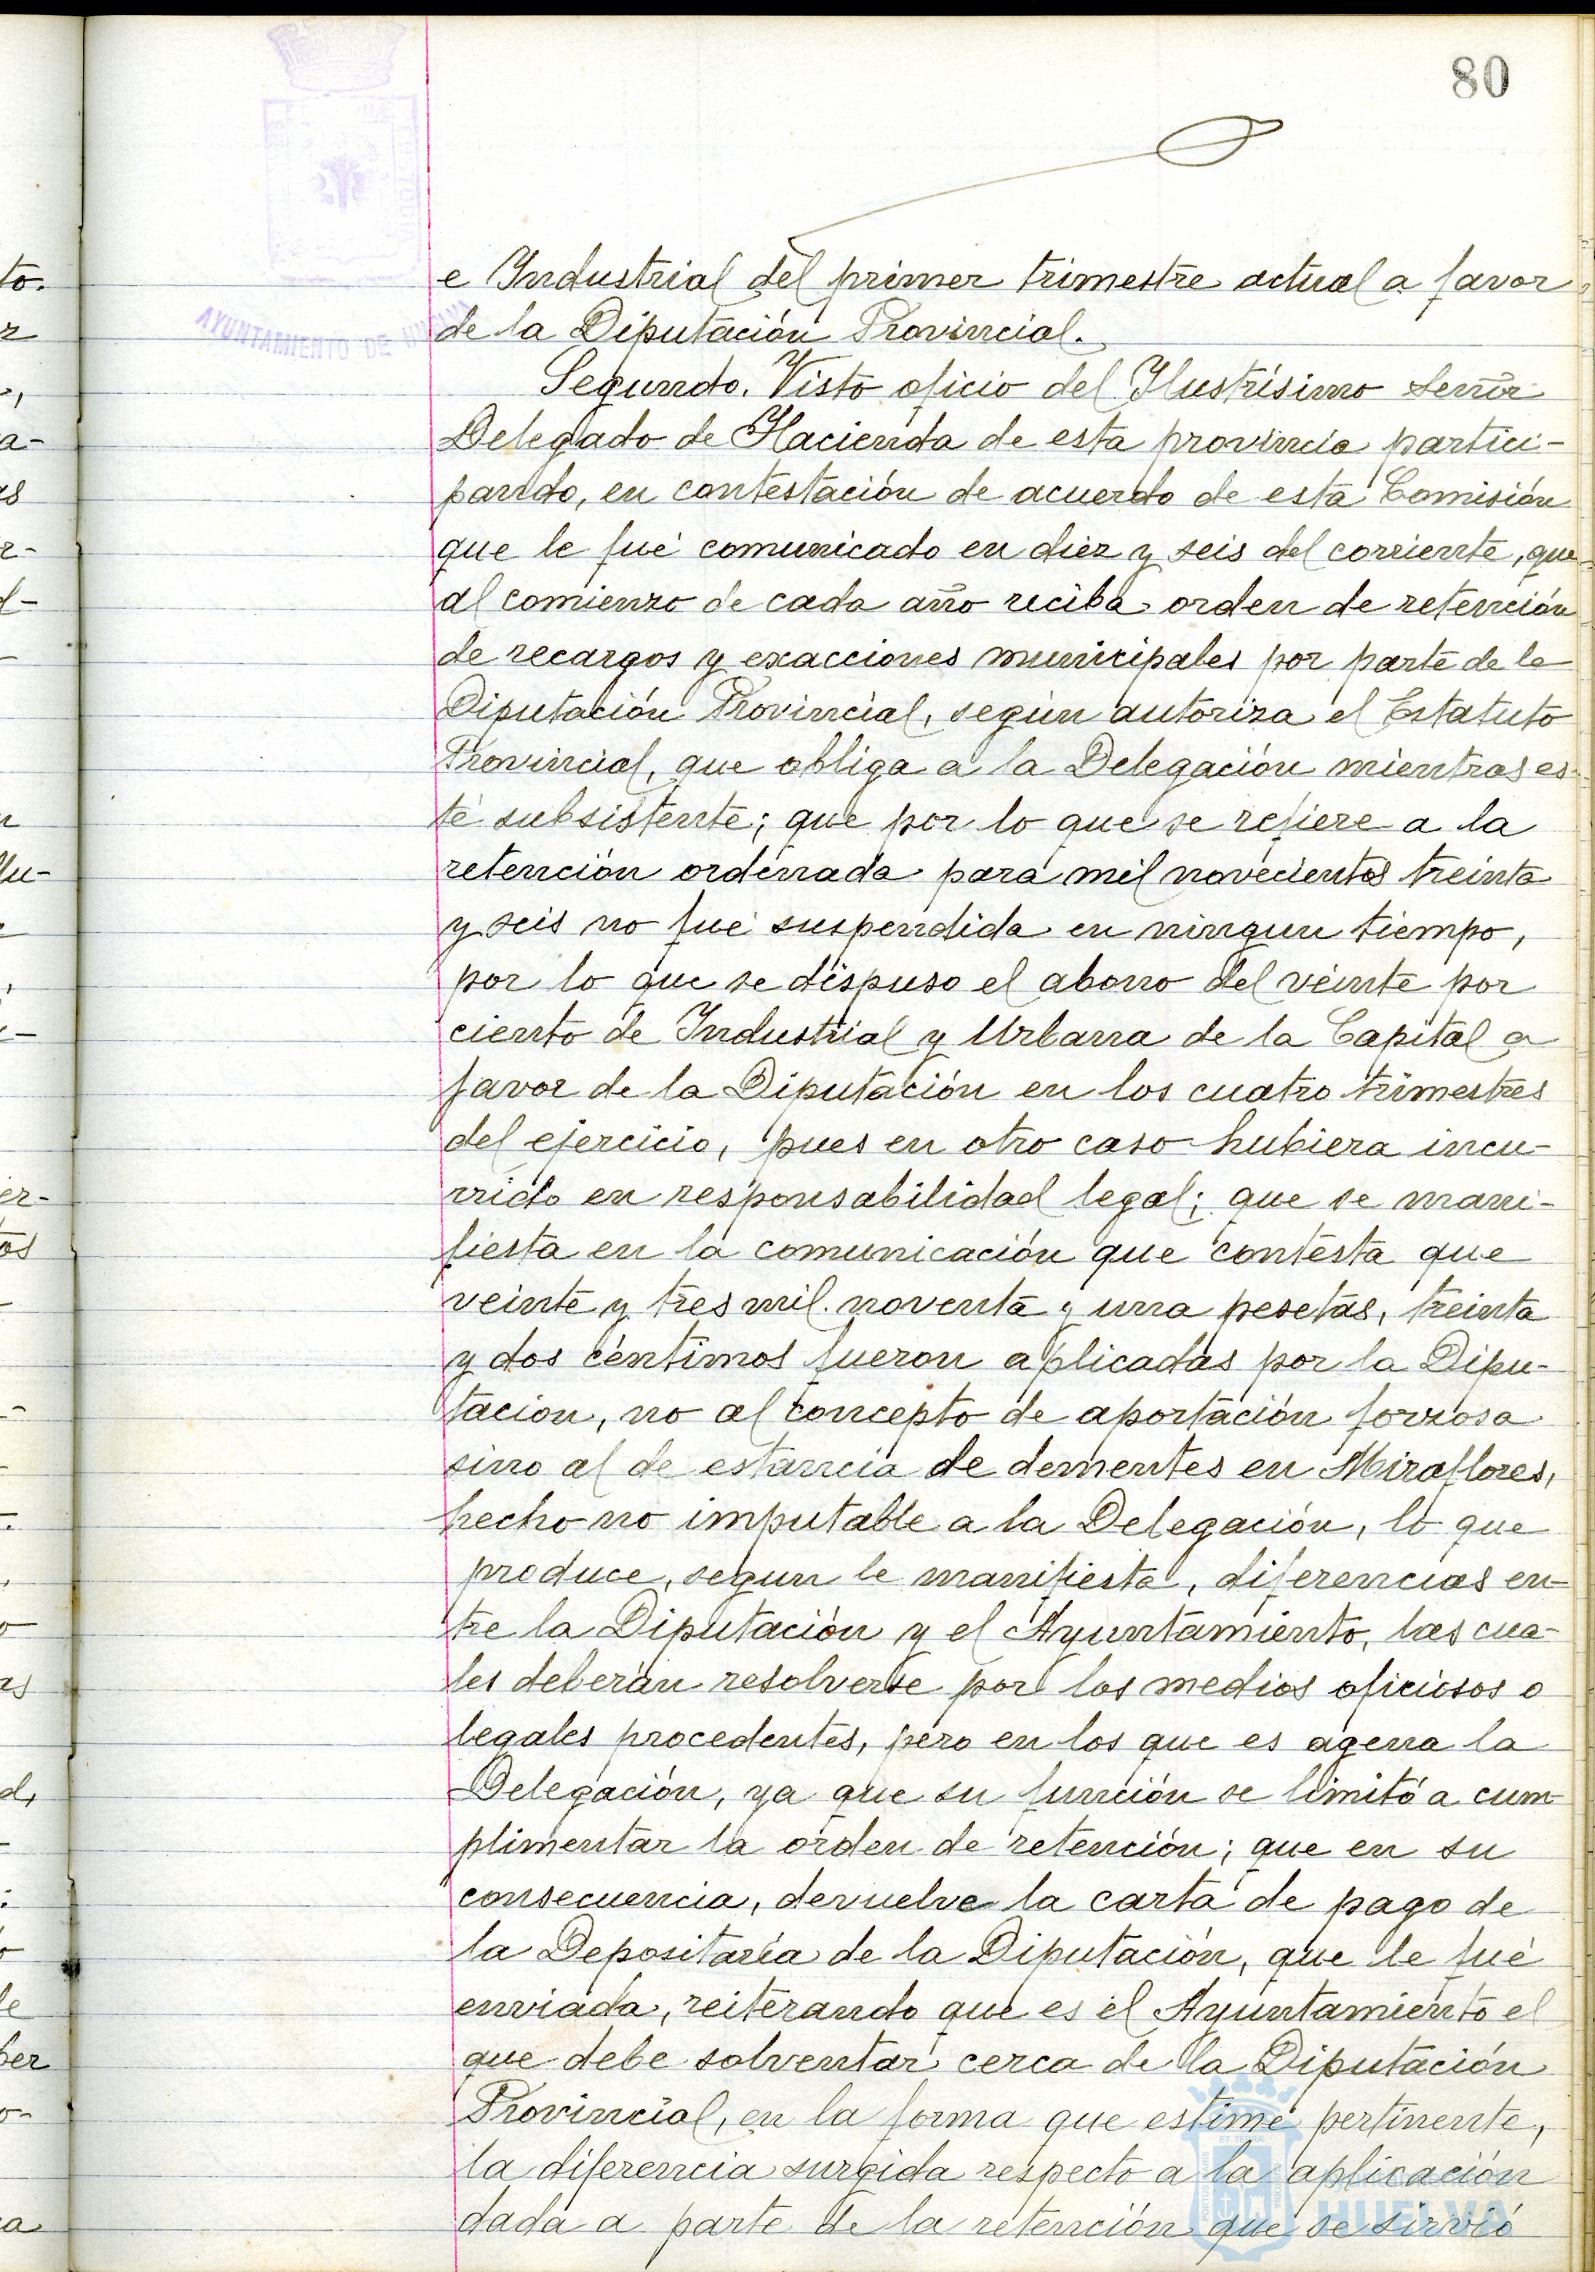 80
AYUNTAMIENTO DE HUELVA
e Industrial del primer trimestre actual a favor
de la Diputación Provincial.
Segundo. Visto oficio del Ilustrísimo Señor
Delegado de Hacienda de esta provincia partici-
pando, en contestación de acuerdo de esta Comisión
que le fué comunicado en diez y seis del corriente, que
al comienzo de cada año reciba orden de retención
de recargos y exacciones municipales por parte de la
Diputación Provincial, según autoriza el Estatuto
Provincial, que obliga a la Delegación mientras es-
té subsistente; que por lo que se refiere a la
retención ordenada para mil novecientos treinta
y seis no fué suspendida en ningun tiempo,
por lo que se dispuso el abono del veinte por
ciento de Industrial y Urbana de la Capital a
favor de la Diputación en los cuatro trimestres
del ejercicio, pues en otro caso hubiera incu-
rrido en responsabilidad legal; que se mani-
fiesta en la comunicación que contesta que
veinte y tres mil noventa y una pesetas, treinta
y dos céntimos fueron aplicadas por la Dipu-
tacion, no al concepto de aportación forzosa
sino al de estancia de dementes en Miraflores,
hecho no imputable a la Delegación, lo que
produce, segun le manifiesta, diferencias en-
tre la Diputación y el Ayuntamiento, las cua-
les deberán resolverse por los medios oficiosos o
legales procedentes, pero en los que es agena la
Delegación, ya que su función se limitó a cum-
plimentar la orden de retención; que en su
consecuencia, devuelve la carta de pago de
la Depositaría de la Diputación, que le fué
enviada, reiterando que es el Ayuntamiento el
que debe solventar cerca de la Diputación
Provincial, en la forma que estime pertinente,
la diferencia surgida respecto a la aplicación
dada a parte de la retención que se sirvió
HUELVA